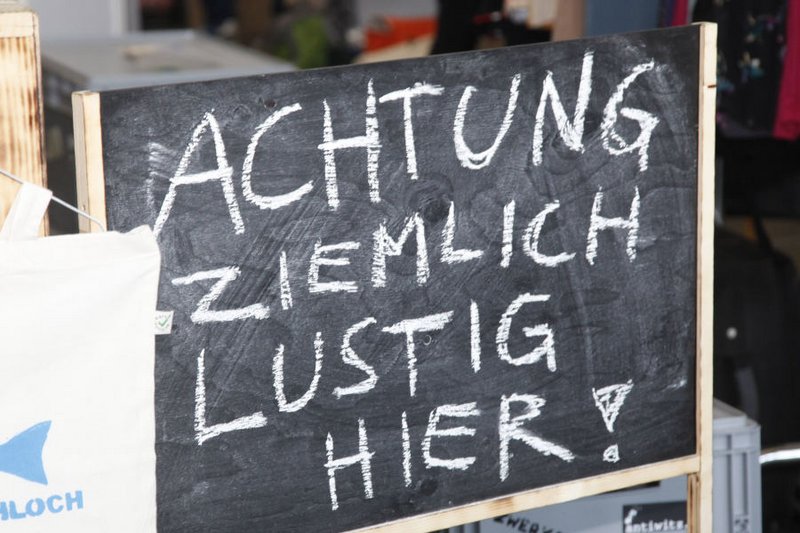 ACHTUNG
ZIEMLICH
LUSTIG
HIER!
antiwitz